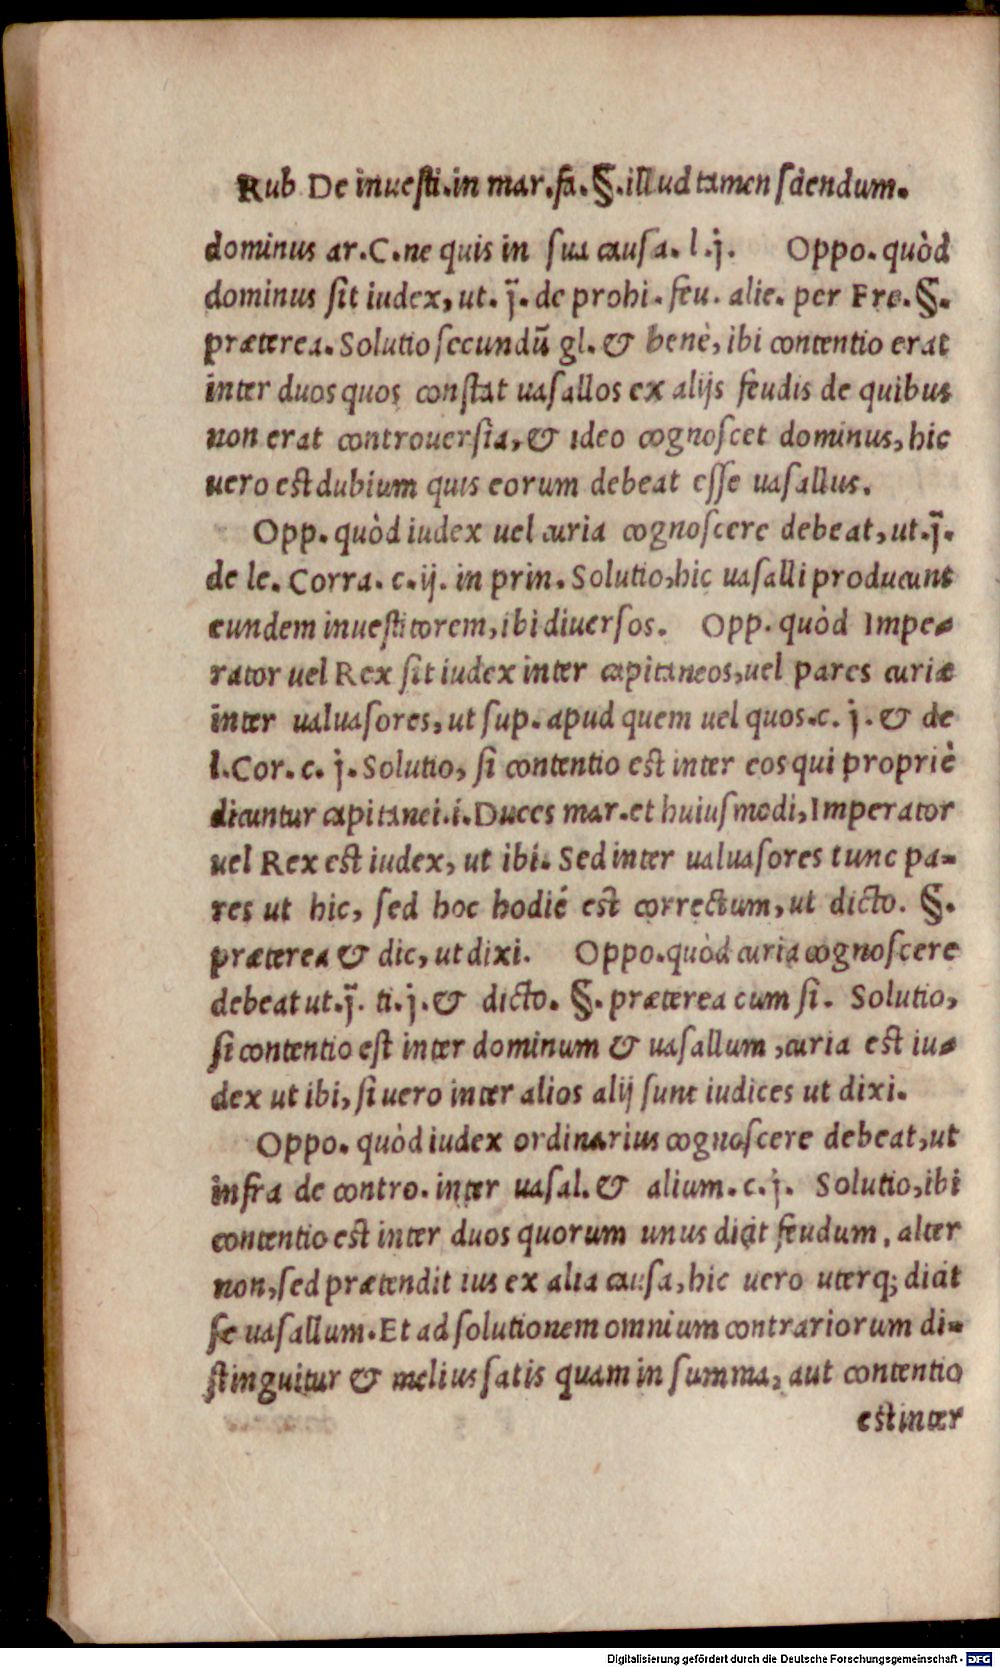 Rub De inuesti.in mar.fa.§.illud tamen sciendum.
dominus ar.C.ne quis in sua causa.l.j. Oppo.quòd
dominus sit iudex, ut. j̃. de prohi. feu. alie. per Fre.§.
præterea.Solutio secundũ gl.& benè, ibi contentio erat
inter duos quos constat uasallos ex alijs feudis de quibus
non erat controuersia,& ideo cognoscet dominus, hic
uero est dubium quis eorum debeat esse uasallus.
Opp. quòd iudex uel curia cognoscere debeat, ut.j̃.
de le. Corra. c.ij. in prin. Solutio, hic uasalli producunt
eundem inuestitorem, ibi diuersos. Opp. quòd Impe-
rator uel Rex sit iudex inter capitaneos, uel pares curiæ
inter ualuasores, ut sup. apud quem uel quos.c. j.& de
l.Cor.c. j. Solutio, si contentio est inter eos qui propriè
dicuntur capitanei.i.Duces mar.et huiusmodi, Imperator
uel Rex est iudex, ut ibi. Sed inter ualuasores tunc pa-
res ut hic, sed hoc hodié est correctum, ut dicto. §.
præterea & dic, ut dixi. Oppo.quòd curia cognoscere
debeat ut.j̃. ti.j.& dicto. §. præterea cum si. Solutio,
si contentio est inter dominum & uasallum, curia est iu-
dex ut ibi, si uero inter alios alij sunt iudices ut dixi.
Oppo. quòd iudex ordinarius cognoscere debeat, ut
infra de contro. inter uasal.& alium.c.j. Solutio, ibi
contentio est inter duos quorum unus dicit feudum, alter
non, sed prætendit ius ex alia causa, hic uero uterq; dicit
se uasallum. Et ad solutionem omnium contrariorum di-
stinguitur & melius satis quam in summa, aut contentio
est inter
Digitalisierung gefördert durch die Deutsche Forschungsgemeinschaft - DFG